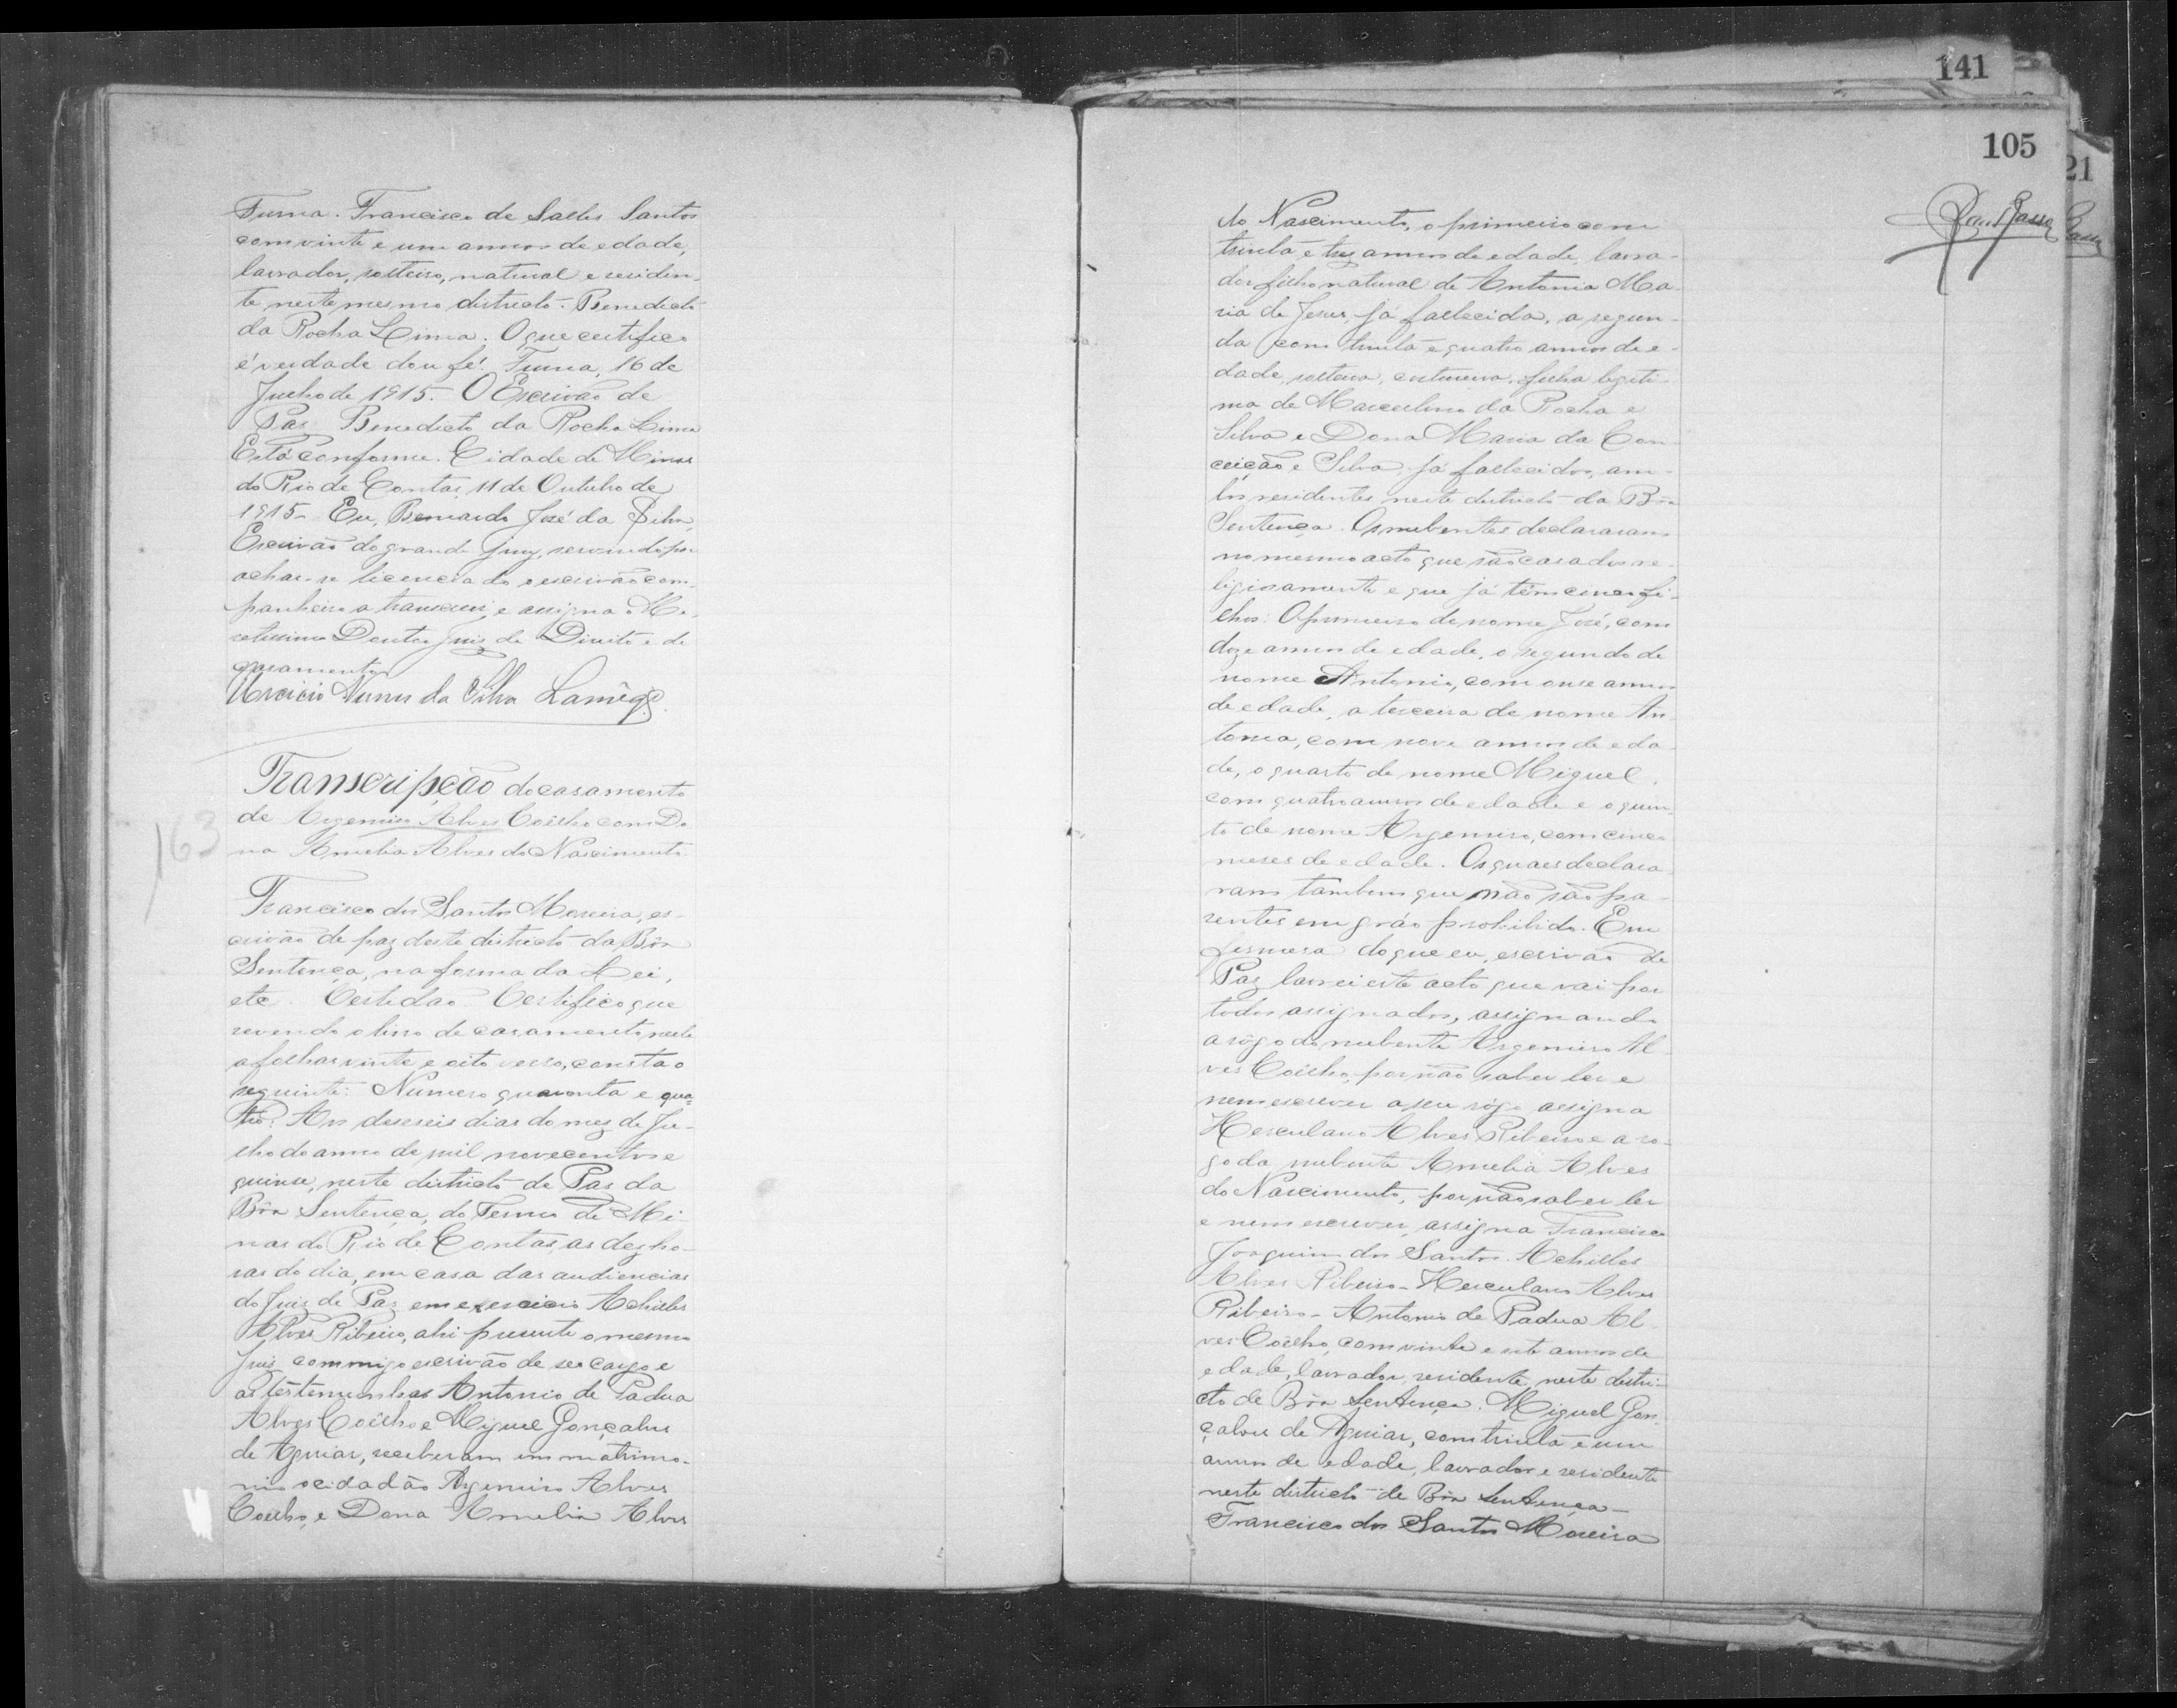 Furna. Francisco de Salles Santos
com vinte e um annos de edade,
lavrador, solteiro, natural e residen-
te neste mesmo districto. Benedicto
da Rocha Lima. O que certifico
é verdade dou fé. Furna, 16 de
Julho de 1915. O Escrivão de
Paz Benedicto da Rocha Lima
Está conforme. Cidade de Minas
do Rio de Contas, 11 de Outubro de
1915. Eu, Bernardo José da Silva,
Escrivão do grande jury, servindo por
achar-se licenciado o escrivão com-
panheiro a transcrevi e assigna o Me-
retissimo Doutor Juiz de Direito e de
casamentos
Nunes da Silva Lamêgo.
163
Transcripção do casamento
de Argemiro Alves Coêlho com Do-
na Amelia Alves do Nascimento.
Francisco dos Santos Moreira, es-
crivão de paz deste districto da Bôa
Sentença, na forma da Lei,
etc. Certidão. Certifico que
revendo o livro de casamento nelle
a folhas vinte e oito verso, consta o
seguinte: Numero quarenta e qua-
tro. Aos deseseis dias do mez de Ju-
lho do anno de mil novecentos e
quinse, neste districto de Paz da
Bôa Sentença, do Termo de Mi-
nas do Rio de Contas, as dez ho-
ras do dia, em casa das audiencias
do Juiz de Paz em exercicio Achilles
Alves Ribeiro, ahi presente o mesmo
Juiz commigo escrivão de seo cargo e
as testemunhas Antonio de Padua
Alves Coêlho e Miguel Gonçalves
de Aguiar, receberam em matrimo-
nio o cidadão Argemiro Alves
Coêlho, e Dona Amelia Alves
141
105
21
do Nascimento, o primeiro com
trinta e tres annos de edade, lavra-
dor filho natural de Antonia Ma-
ria de Jesus, já fallecida, a segun-
da com trinta e quatro annos de e-
dade, solteira, costureira, filha legiti-
ma de Marcelino da Rocha e
Silva e Dona Maria da Con-
ceição e Silva, já fallecidos, am-
bos residentes neste districto da Bôa
Sentença. Os nubentes declararam
no mesmo acto que são casados re-
ligiosamente e que já têm cinco fi-
lhos: O primeiro de nome José, com
doze annos de edade, o segundo de
nome Antonio, com onse annos
de edade, a terceira de nome An-
tonia, com nove annos de eda-
de, o quarto de nome Miguel,
com quatro annos de edade e o quin-
to de nome Argemiro, com cinco
meses de edade. Os quaes declara-
ram tambem que não são pa-
rentes em gráo prohibido. Em
firmesa do que eu, escrivão de
Paz lavrei este acto que vai por
todos assignados, assignando
a rôgo do nubente Argemiro Al-
ves Coêlho, por não saber ler e
nem escrever a seu rôgo assigna
Herculano Alves Ribeiro e a ro-
go da nubente Amelia Alves
do Nascimento, por não saber ler
e nem escrever, assigna Francisco
Joaquim dos Santos. Achilles
Alves Ribeiro - Herculano Alves
Ribeiro - Antonio de Padua Al-
ves Coêlho, com vinte e sete annos de
edade, lavrador, residente neste distri-
cto de Bôa Sentença. Miguel Gon-
çalves de Aguiar, com trinta e um
annos de edade, lavrador e residente
neste districto de Bôa Sentença -
Francisco dos Santos Moreira